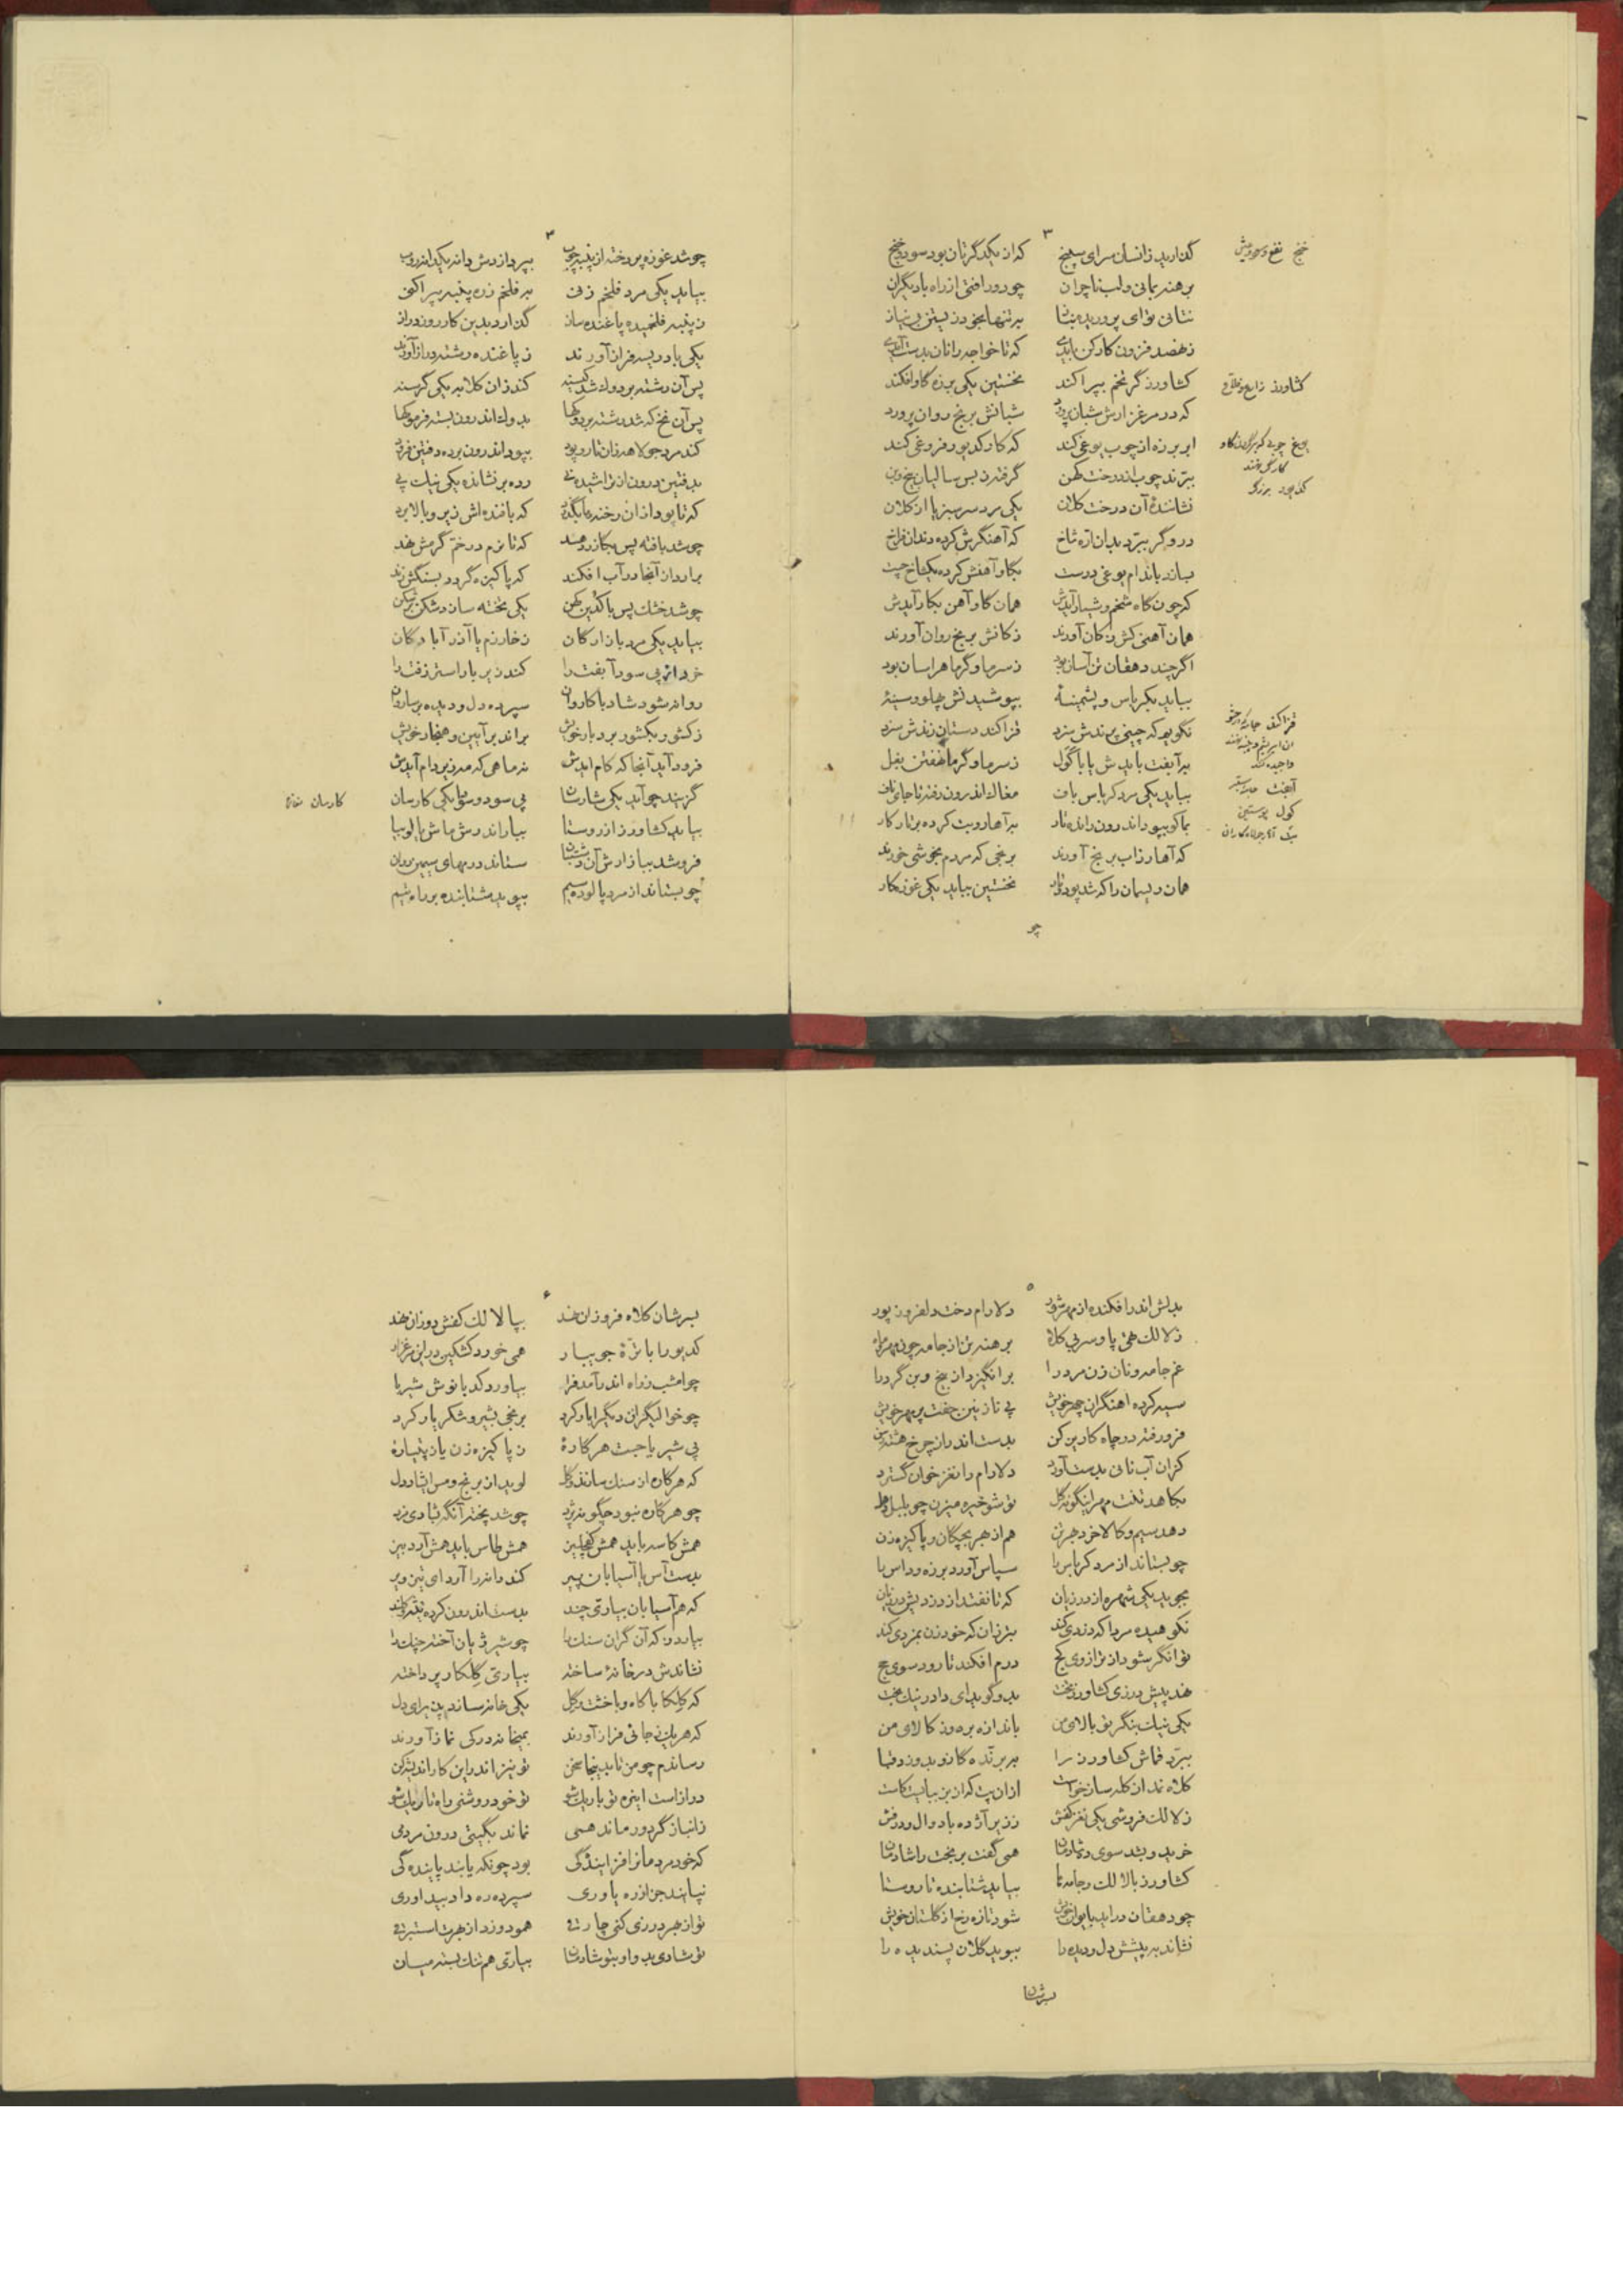 ۳
گذارید زانسان سرای سپنج که از یکدگرتان بود سود و خنج
برهنه بمانی و لب ناچران چو دور افتی از راه یاریگران
نتانی توای پروریده بناز به تنها بخود زیستن بی نیاز
ز هفصد فزون کارکن بایدی که تا خواجه را نان بدست آیدی
کشاورز گر تخم بپراکند نخستین یکی برزه گاو افکند
که در مرغزارش شبان پرورد شبانش برنج روان پرورد
ابر برزه از چوب یوغی کند که گاو کدیور فروغی کند
ببرّند چوب از درخت کهن گرفته ز بس سالیان بیخ و بن
نشانندهٔ آن درخت کلان یکی مرد سرسبز پا از کلان
دروگر ببرّد بدان تازه شاخ که آهنگرش کرده دندان فراخ
بسازد باندام یوغی درست بگاو آهنش کرده یکشاخ چست
که چون گاه شخم و شیار آیدش همان گاو آهن بکار آیدش
همان آهنی کش ز کان آورند ز کانش برنج روان آورند
اگر چند دهقان تن آسان بود ز سرما و گرما هراسان بود
بباید بکرباس و پشمینهٔ بپوشیدنش پهلو و سینهٔ
نگویم که چینی پرندش سزد قزاکند دستان زندش سزد
بر آبفت بایدش یا با گول ز سرما و گرما نهفتن بغل
بباید یکی مرد کرباس باف مغاک اندرون رفته تا جای ناف
بماکو بپود اندرون رانده تار بر آهار و بت کرده بر تار کار
که آهار زاب برنج آورند برنجی که مردم بخوشی خورند
همان ریسمان را که شد پود و تار نخستین بباید یکی غوزه کار
چو
خنج نفع و سود و عیش
کشاورز زارع و فلاح
یوغ چوبی که بر گردن گاو
کاری نهند
کدیور برزگر
آبفت جامه ستبر
گول پوستین
بت آهار جولاهکاران
۴
چو شد غوزه پردخته از پنبه چوب بپردازدش دانه یکی اندروب
بباید یکی مرد فلخم زنی به فلخم زده پنبه بپراکنی
ز پنبه فلخمیده پاغنده ساز گذارد بدین کار روز دراز
یکی باد ریسه فراز آورند ز پاغنده رشته دراز آورند
پس آن رشته بر دوک شد کند زان کلابه یکی گرسنه
پس آن نخ که شد رشته بر دوکها بدوک اندرون بسته فرموکها
کند مرد جولاهه زان تار و پود بپود اندرون برده دفتین فرود
بدفتین درون از تراشیده نی رده بر نشانده یکی نیک پی
که تا پود از آن رخنه ها بگذرد که بافنده اش زیر و بالا برد
چو شد بافته پس بگازر دهند که تا نرم در خمّ گرمش نهد
برآرد از آنجا و در آب افکند که پاکیزه گردد بسنگش زند
چو شد خشک پس با کدین کهن یکی تخته سازد شکن بر شکن
بباید یکی مرد بازارگان ز خارزم یا آذرآبادگان
خریدار پی سود آبفت را کند زیر بار استر زفت را
روانه شود شاد با کاروان سپرده دل و دیده بر ساروان
ز کشور بکشور برد بار خویش براند بر آیین و هنجار خویش
فرود آید آنجا که کام آیدش نه ماهی که مه زیر دام آیدش
گزیند چو آید یکی شارسان پی سود و سودا یکی کارسان
بیاید کشاورز از روستا بیاراندرش هاش یا لوبیا
فروشد ببازارش آن رشتنان ستاند درمهای سیمین روان
چو بستاند از مرد پالوده سیم بپوید شتابنده بر راه بیم
کارسان خانه
۵
بدلش اندر افکنده از مهر شور دلارام دخت دلفروز پور
ز لالک تهی پا و سر بی کلاه برهنه تن از جامه چون مهر و ماه
غم جامه و نان زن مرد را برانگیزد از بیخ و بن گرد را
سیه کرده آهنگران چهر خویش پی نازنین جفت پر مهر خویش
فرو رفته در چاه کاریز کن بدست اندر از چرخ هشته رسن
کزان آب نانی بدست آورد دلارام را نغز خوان گسترد
بکاهد تنت مهر اینگونه گل تو شو خیره میزن چو بلبل دهل
دهد سیم و کالا خرد بهر تن هم از بهر بچگان و پاکیزه زن
چو بستاند از مرد کرباس را سپاس آورد برزه و داس را
بجوید یکی شهره از درزیان که تا نفتد از دزدیش در زیان
نکوهیده مردا که دزدی کند بتر زان که خود زن بمزدی کند
توانگر شود از ترازوی کج درم افکند تا رود سوی حج
نهد پیش درزی کشاورز رخت بدو گوید ای دادر نیکبخت
یکی نیک بنگر تو بالای من باندازه بر دوز کالای من
ببرّد قماش کشاورز را به برنده گازو بدوزد قبا
کلاه نمد از کله ساز خواست از آن پت که از بز ببایست کاست
ز لالک فروشی یکی نغز کفش ز زیر آژده با دوال و درفش
خرید و بشد سوی ده شادمان همی گفت بر بخت را شادمان
کشاورز با لالک و جامه ها بیاید شتابنده تا روستا
چو دهقان درآید بایوان خویش شود تازه رخ از گلستان خویش
نشاند به پیشش دل و دیده را ببوید گلان پسندیده را
بسرشان
۶
بسرشان کلاه فروزان نهد بپا لالک کفش دوزان نهد
کدیور ابا ترّهٔ جویبار همی خورد کشکین در این مرغزار
چو امشب ز راه اندر آمد فرا بیاورد کدبانوش شیربا
چو خوالیگران دیگرا بار کرد برنجی بشیر و شکر یار کرد
پی شیربا جست هرکارهٔ ز پاکیزه زن یا ز پتیارهٔ
که هرکاره از سنگ سازند و گل لوید از برنج و مس ای شاد دل
چو هرکاره نبود چگونه پزد چو شد پخته آنگه بشادی مزد
همش کاسه باید همش کفچلین همش طاس باید همش آردبین
بدست آس یا آسیابان پیر کند دانه را آرد ای تیز ویر
که هم آسیابان بیارتی چند بدست اندرون کرده تیشه کلند
بیارد و که آن گران سنگ را چو شیر ژیان آخته چنگ را
نشاندش در خانهٔ ساخته بیارتی گلکار پرداخته
که گلکا با کاه و با خشت و گل یکی خانه سازدش برای دل
که هر یک ز جائی فراز آورند بمیخانه در کی نماز آورند
رساندم چو من تا بدینجا سخن تو نیز اندرین کار اندیشه کن
دراز است این ره تو باریک شو تو خود روشنی راه تاریک شو
ز انباز گر دور ماند همی نماند بگیتی درون مردمی
که خود مردمانرا فزایندگی بود چونکه یابند پایندگی
نپایند جز از ره یاوری سپرده ره داد بیداوری
تو از بهر درزی کنی چارتی همو دوزد از بهرت استبرقی
تو شادی بدو او بتو شادمان بیارتی هم تنگ بسته میان